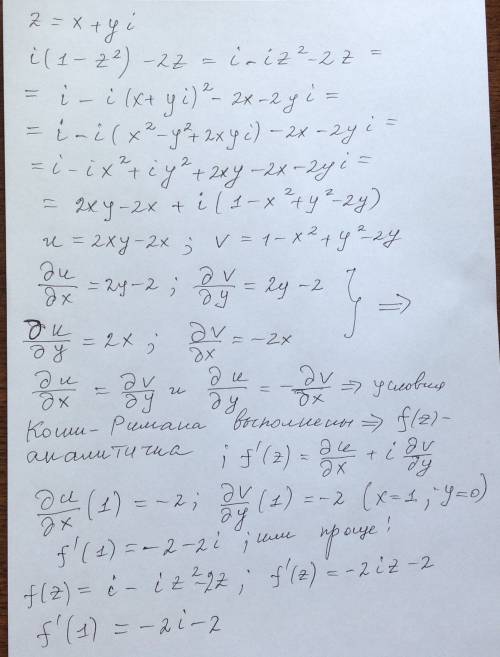 z = x + y i
i(1 - z²) - 2z = i - i z² - 2z =
= i - i(x + yi)² - 2x - 2yi =
= i - i(x² - y² + 2xyi) - 2x - 2yi =
= i - ix² + iy² + 2xy - 2x - 2yi =
= 2xy - 2x + i(1 - x² + y² - 2y)
u = 2xy - 2x ; v = 1 - x² + y² - 2y
∂u/∂x = 2y - 2 ; ∂v/∂y = 2y - 2 } ⇒
∂u/∂y = 2x ; ∂v/∂x = -2x
∂u/∂x = ∂v/∂y и ∂u/∂y = -∂v/∂x ⇒ условия
Коши-Римана выполнены ⇒ f(z) -
аналитична ; f'(z) = ∂u/∂x + i ∂v/∂y
∂u/∂x (1) = -2 ; ∂v/∂y (1) = -2 (x = 1, y = 0)
f'(1) = -2 - 2i ; или проще!
f(z) = i - i z² - 2z ; f'(z) = -2iz - 2
f'(1) = -2i - 2